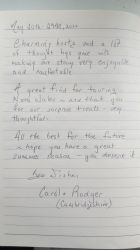 May 20th
Charming hosts and a lot
of thought has gone into
making our stay very enjoyable
and comfortable
A great find for touring
North Wales - and thank you
for our surprise treats - very
thoughtful
All the best for the future
& hope you have a great
summer season - you deserve it
Carol & Rodger
(Cambridgeshire)